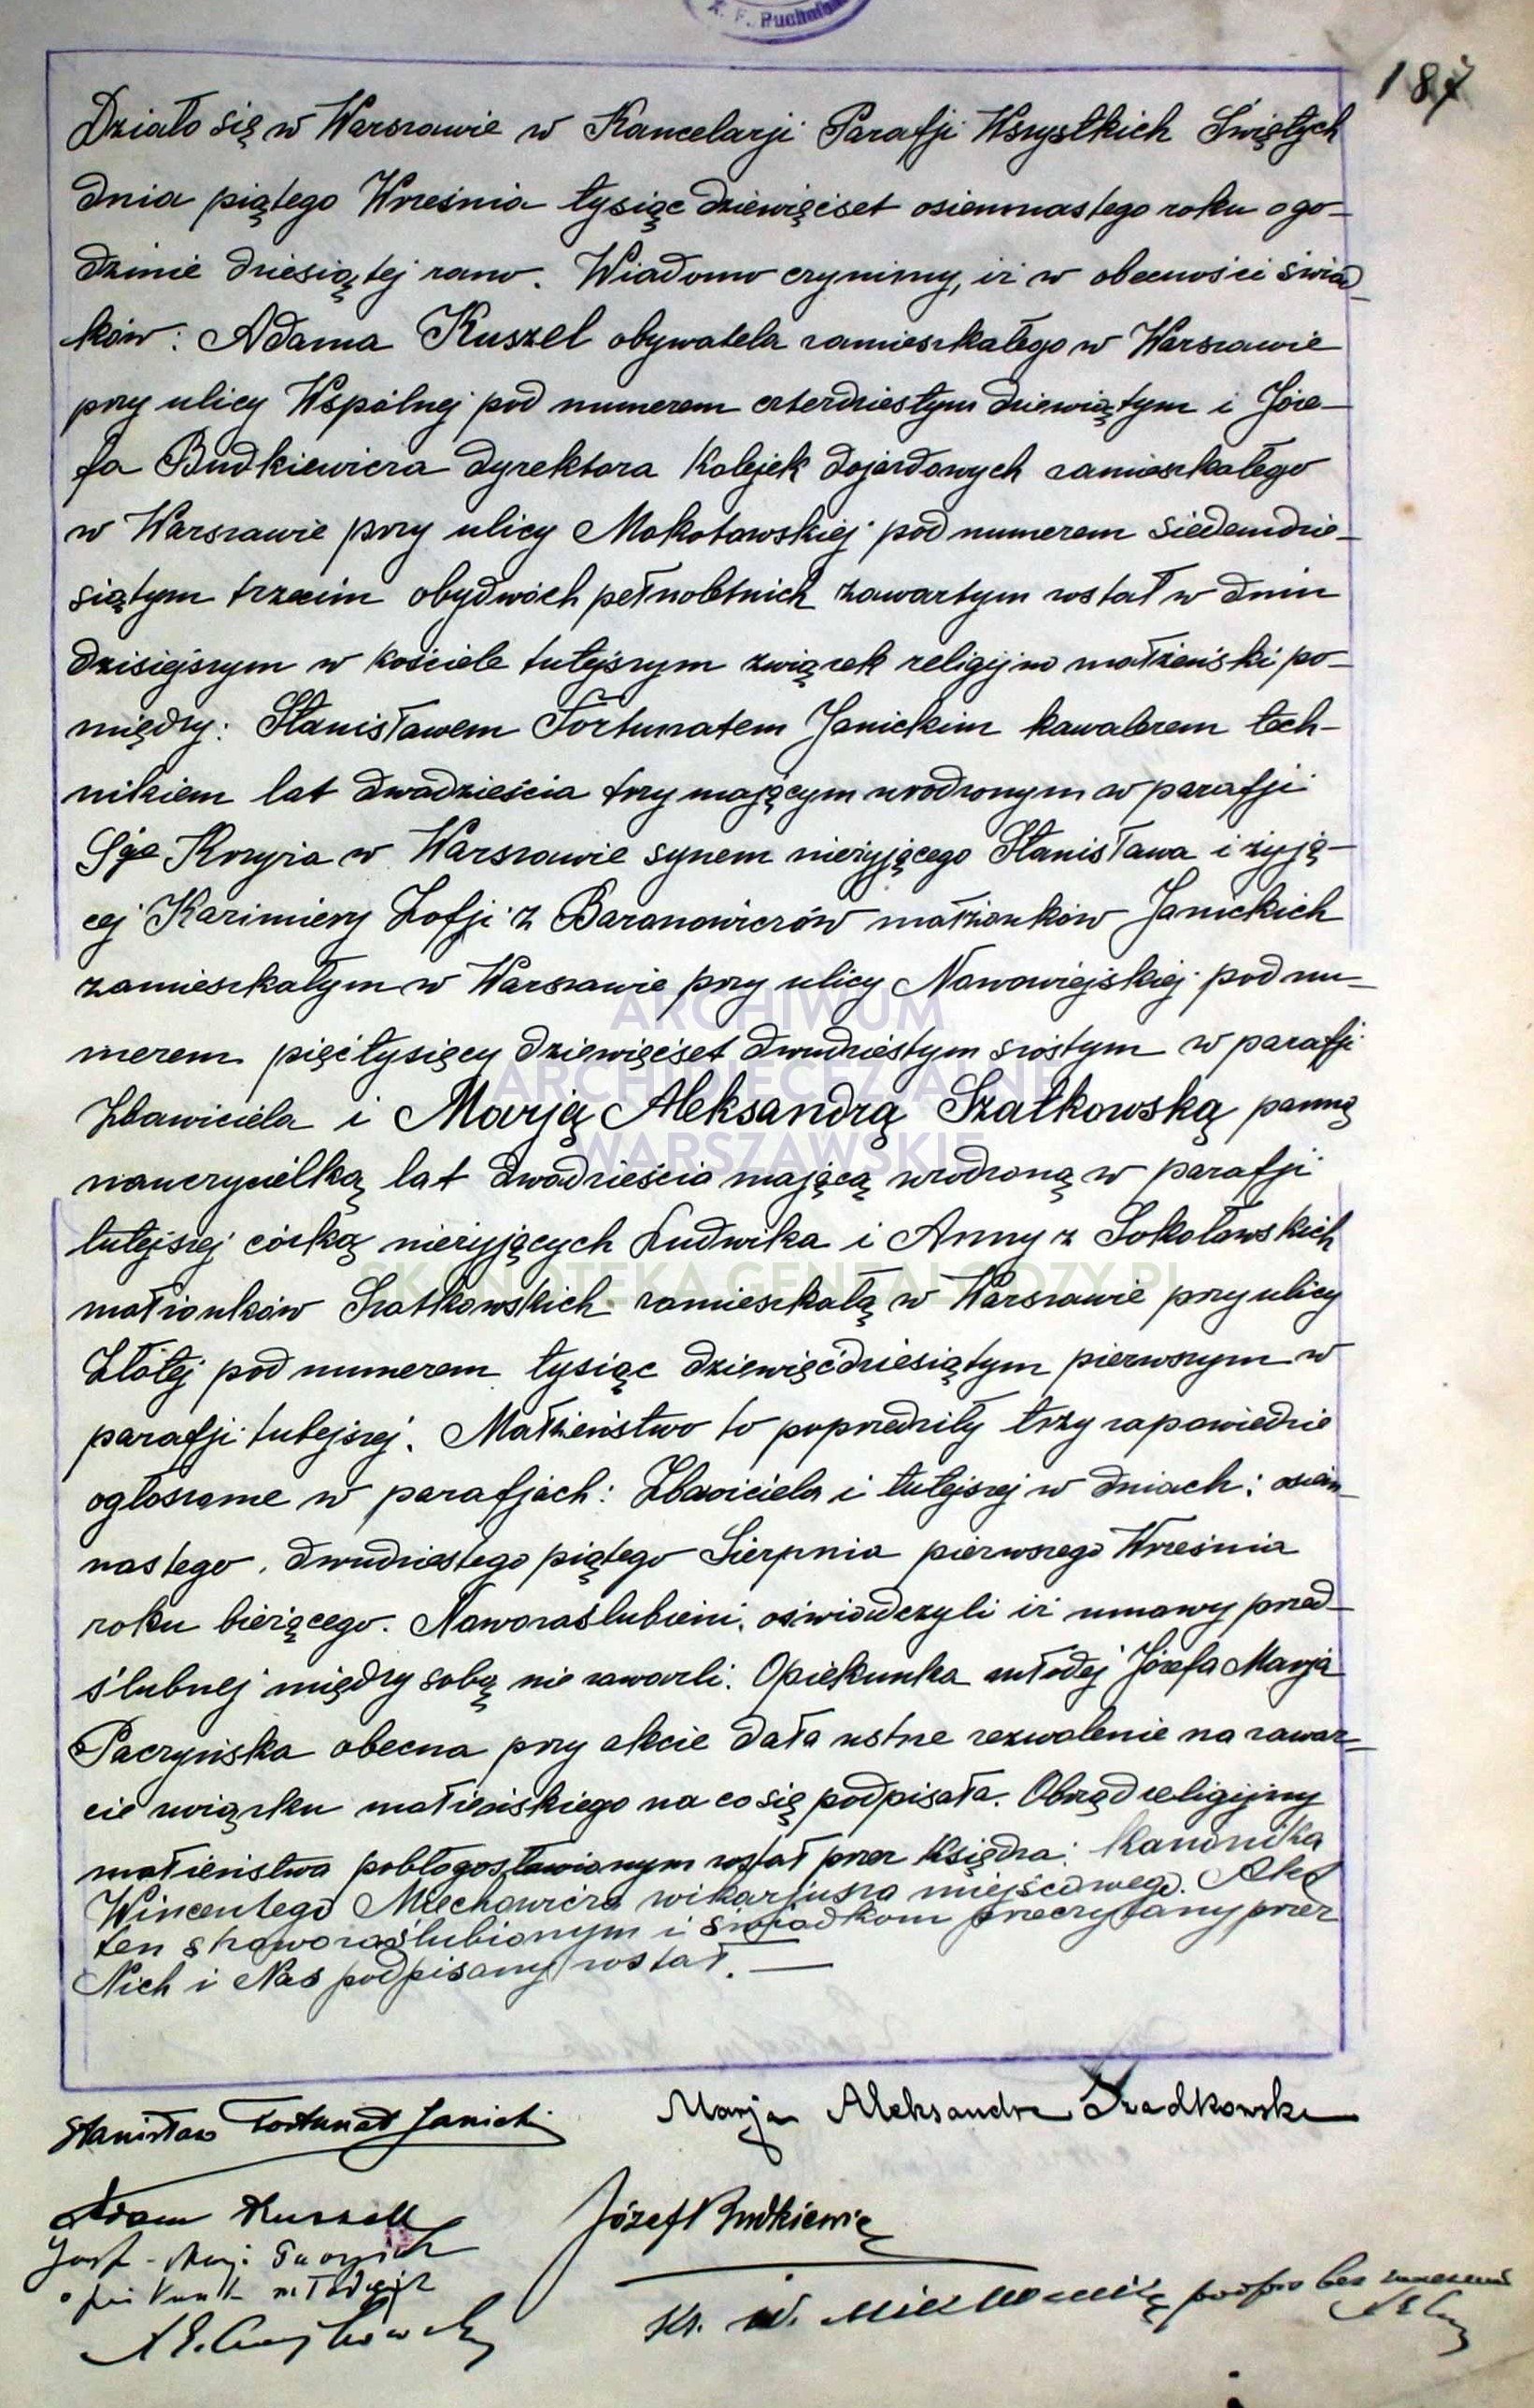 K. F. Puchals
187
Działo się w Warszawie w Kancelarji Parafji Wszystkich Świętych
dnia piątego Września tysiąc dziewięćset osiemnastego roku o go-
dzinie dziesiątej rano. Wiadomo czynimy, iż w obecności świad-
ków: Adama Kuszel obywatela zamieszkałego w Warszawie
przy ulicy Wspólnej pod numerem czterdziestym dziewiątym i Józe-
fa Budkiewicza dyrektora Kolejek dojazdowych zamieszkałego
w Warszawie przy ulicy Mokotowskiej pod numerem siedemdzie-
siątym trzecim obydwóch pełnoletnich zawartym został w dniu
dzisiejszym w kościele tutejszym związek religijno małżeński po-
między: Stanisławem Fortunatem Janickim kawalerem tech-
nikiem lat dwadzieścia trzy mającym urodzonym w parafji
Sgo Krzyża w Warszawie synem nieżyjącego Stanisława i żyją-
cej Kazimiery Zofji z Baranowiczów małżonków Janickich
zamieszkałym w Warszawie przy ulicy Nowowiejskiej pod nu-
merem pięć tysięcy dziewięćset dwudziestym szóstym w parafji
Zbawiciela i Marją Aleksandrą Szatkowską panną
nauczycielką lat dwadzieścia mającą urodzoną w parafji
tutejszej córką nieżyjących Ludwika i Anny z Sokołowskich
małżonków Szatkowskich zamieszkałą w Warszawie przy ulicy
Złotej pod numerem tysiąc dziewięćdziesiątym pierwszym w
parafji tutejszej. Małżeństwo to poprzedziły trzy zapowiedzie
ogłoszone w parafjach: Zbawiciela i tutejszej w dniach: osiem-
nastego, dwudziestego piątego Sierpnia pierwszego Września
roku bieżącego. Nowozaślubieni, oświadczyli iż umowy przed-
ślubnej między sobą nie zawarli. Opiekunka młodej Józefa Marja
Paczyńska obecna przy akcie dała ustne zezwolenie na zawar-
cie związku małżeńskiego na co się podpisała. Obrzęd religijny
małżeństwa pobłogosławionym został przez Księdza: Kanonika
Wincentego Miechowicza wikarjusza miejscowego. Akt
ten nowozaślubionym i świadkom przeczytany przez
Nich i Nas podpisany został.
Stanisław Fortunat Janicki
Marja Aleksandra Szadkowska
Adam Kuszell
Józef Budkiewicz
Ks. W. Miechowicz
ARCHIWUM
ARCHIDIECEZJALNE
WARSZAWSKIE
SKANOTEKA.GENEALODZY.PL